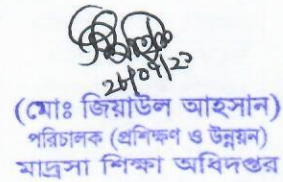 (মোঃ জিয়াউল আহসান)
পরিচালক (প্রশিক্ষণ ও উন্নয়ন)
মাদ্রসা শিক্ষা অধিদপ্তর